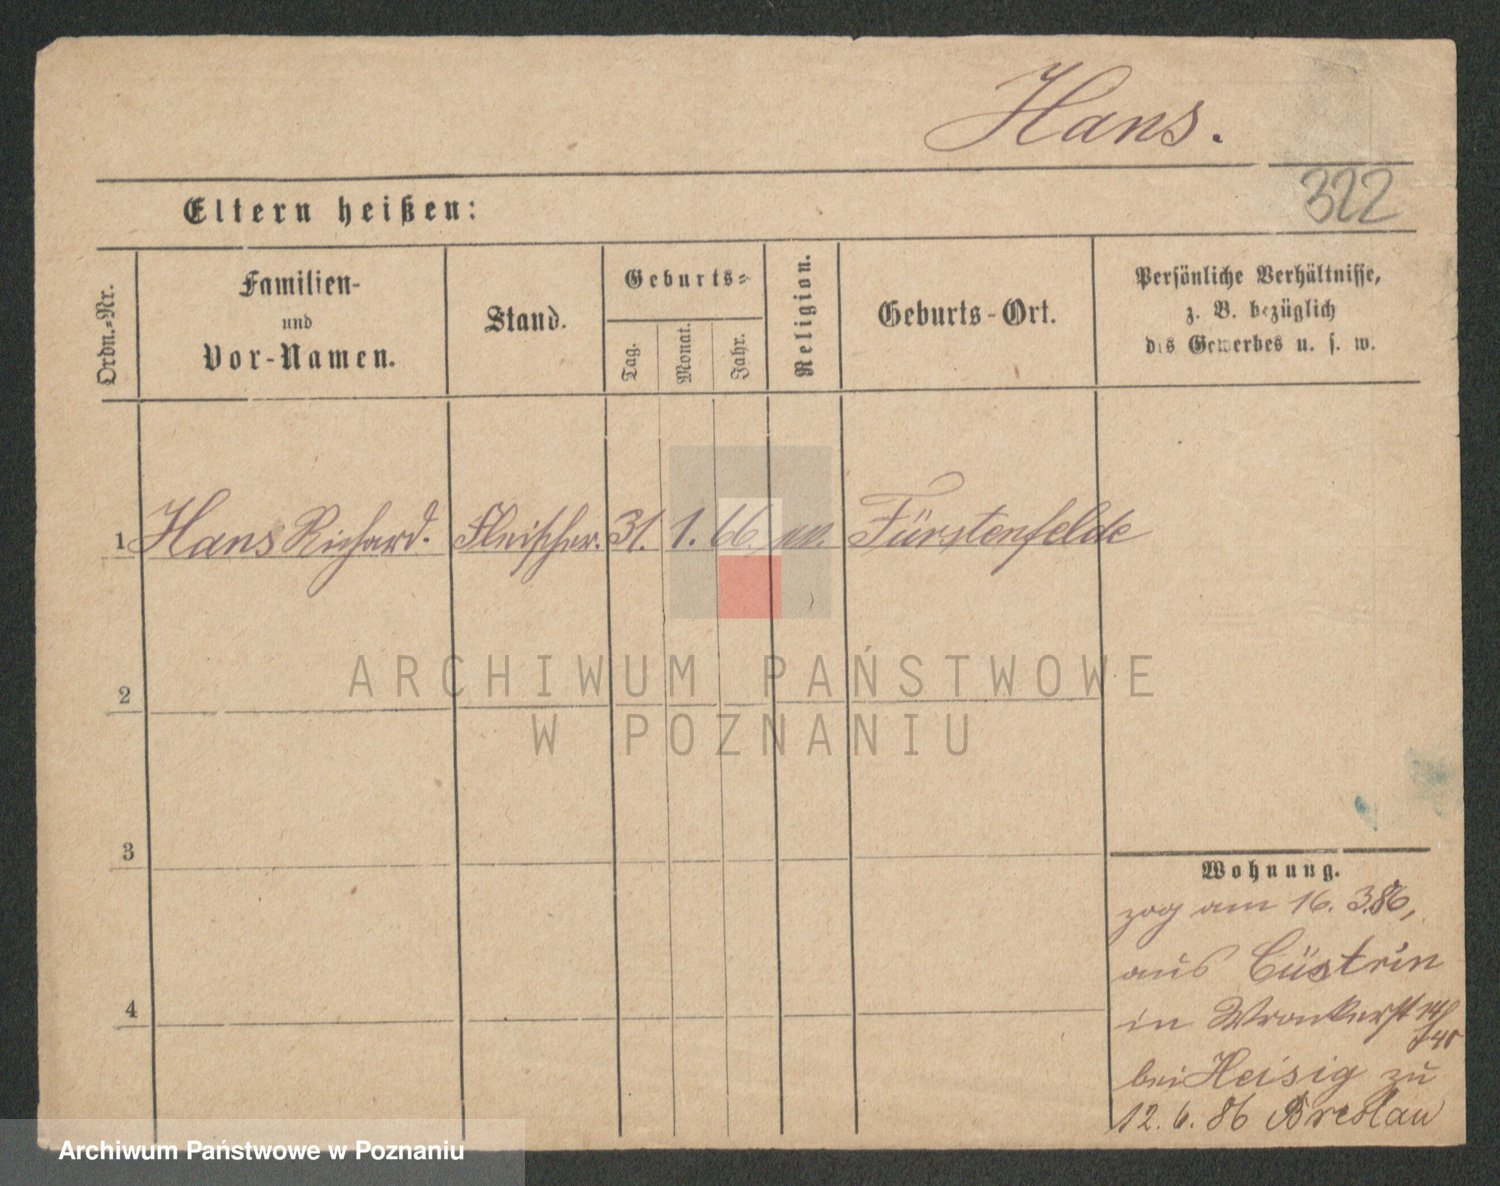 Hans.
322
Eltern heißen:
Ordn.=Nr.
Familien-
und
Vor-Namen.
Stand.
Geburts=
Tag.
Monat.
Jahr.
Religion.
Geburts-Ort.
Persönliche Verhältnisse,
z. B. bezüglich
des Gewerbes u. s. w.
1 Hans Richard. Fleischer. 31. 1. 66 Fürstenfelde
ARCHIWUM PAŃSTWOWE
W POZNANIU
2
3
4
Wohnung.
zog am 16. 3.86,
aus Cüstrin
in Wronkerst 14/
bei Heisig zu
12. 6. 86 Breslau
Archiwum Państwowe w Poznaniu